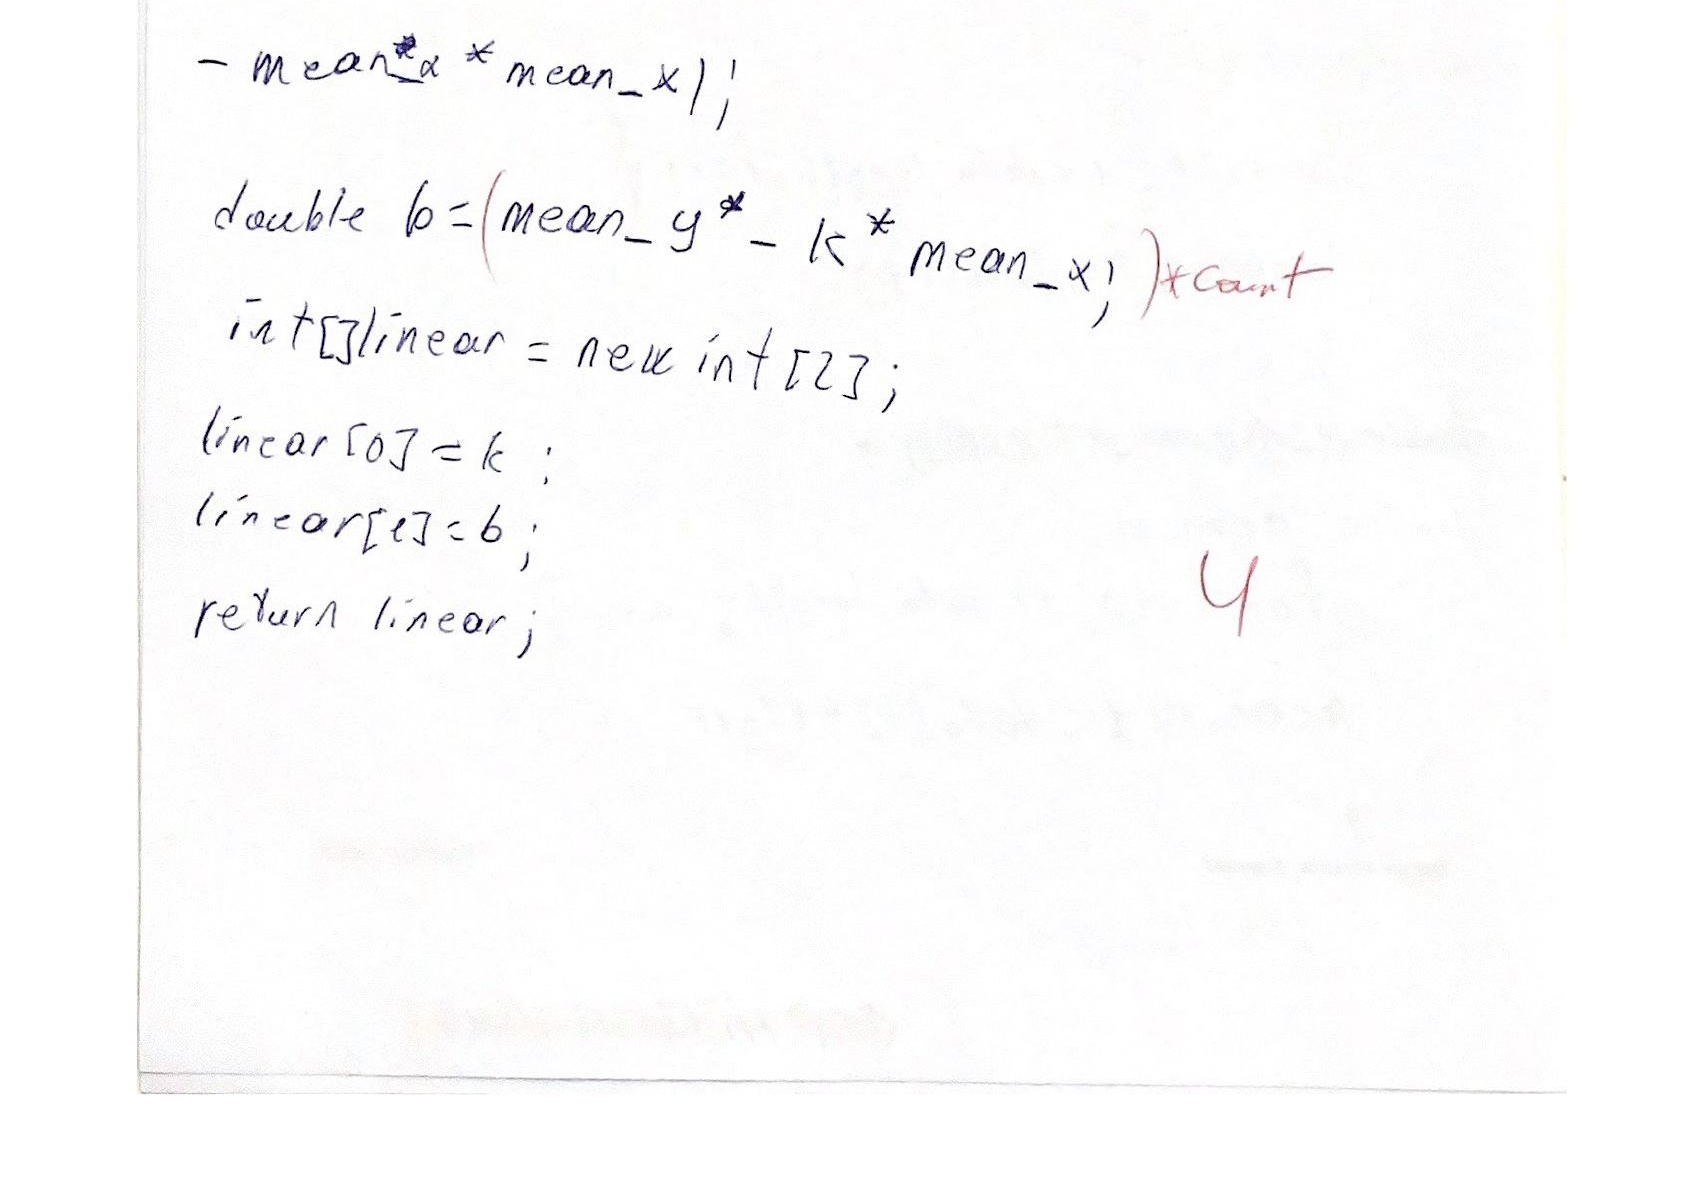 - mean_x * mean_x);
double b=(mean_y - k* mean_x;)*count
int[]linear = new int[2];
linear[0]=k;
linear[1]=b;
4
return linear;